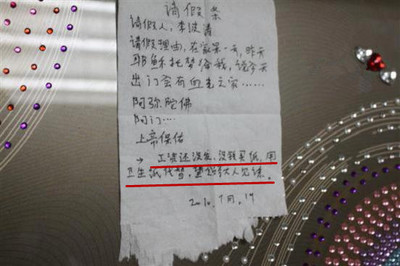 请假条
请假人：李波
请假理由：在家呆一天，昨天
耶稣托梦给我，说今天
出门会有血光之灾……
阿弥陀佛
阿门……
上帝保佑
→ 工资还没发，没钱买纸，用
卫生纸代替，望领导大人见谅。
月.19